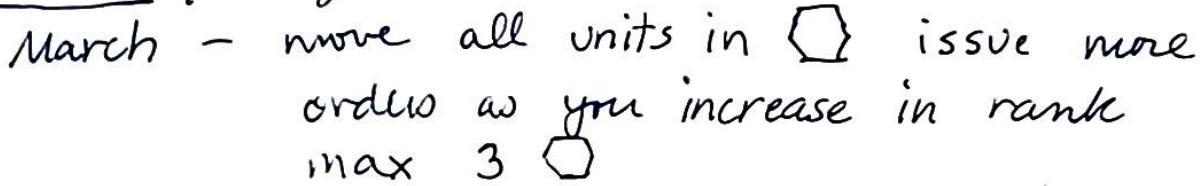 March - move all units in ⬡ issue more
orders as you increase in rank
max 3 ⬡